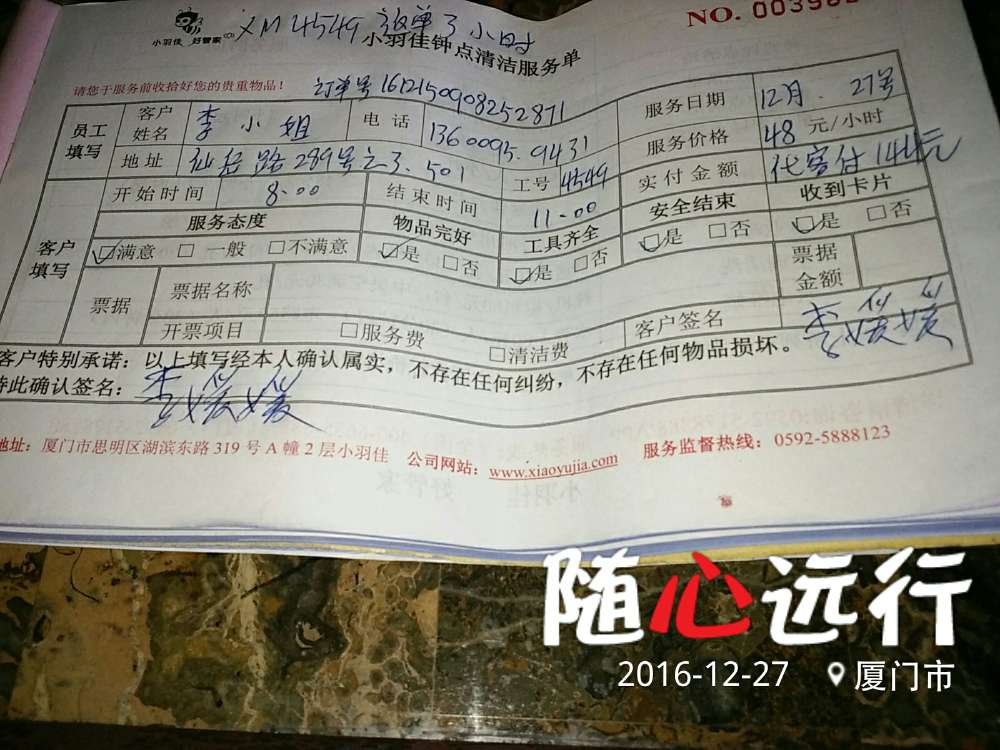 小羽佳 好管家 XM4549 派单3小时
NO. 00398
小羽佳钟点清洁服务单
请您于服务前收拾好您的贵重物品! 订单号1612150908252871
员工填写 客户姓名 李小姐 电话 1360095.9431 服务日期 12月.27号
地址 仙岳路289号之3.501 工号 4549 服务价格 48元/小时
客户填写 开始时间 8.00 结束时间 11.00 实付金额 代客付144元
服务态度 物品完好 工具齐全 安全结束 收到卡片
☑满意 □一般 □不满意 ☑是 □否 ☑是 □否 ☑是 □否 ☑是 □否
票据 票据名称 票据金额
开票项目 □服务费 □清洁费 客户签名 李媛媛
客户特别承诺:以上填写经本人确认属实,不存在任何纠纷,不存在任何物品损坏。
特此确认签名: 李媛媛
地址:厦门市思明区湖滨东路 319 号 A 幢 2 层小羽佳 公司网站:www.xiaoyujia.com 服务监督热线:0592-5888123
随心远行
2016-12-27 厦门市